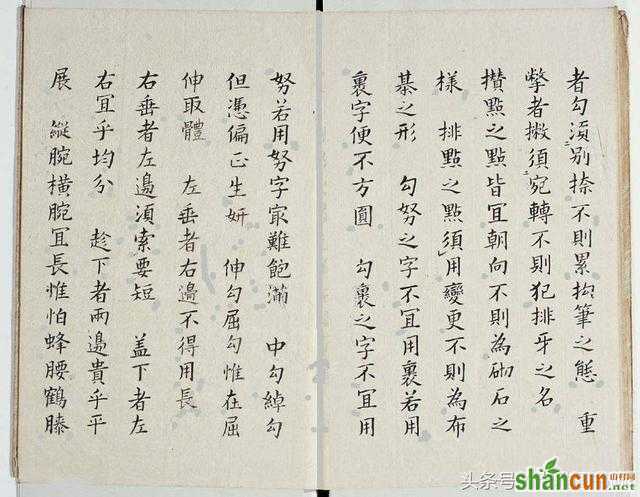 者勾須別捺不則累抅筆之態　重
撆者撇須宛轉不則犯排牙之名
攅點之點皆冝朝向不則為砌石之
樣　排點之點須用變更不則為布
棊之形　勾努之字不冝用裹若用
裹字便不方圓　勾裹之字不冝用
努若用努字冣難飽滿　中勾綽勾
但憑偏正生妍　伸勾屈勾惟在屈
伸取體　左垂者右邊不得用長
右垂者左邊須索要短　盖下者左
右冝乎均分　趁下者兩邊貴乎平
展　縱腕橫腕冝長惟怕蜂腰鶴膝
头条号
shancun
山村网
.net